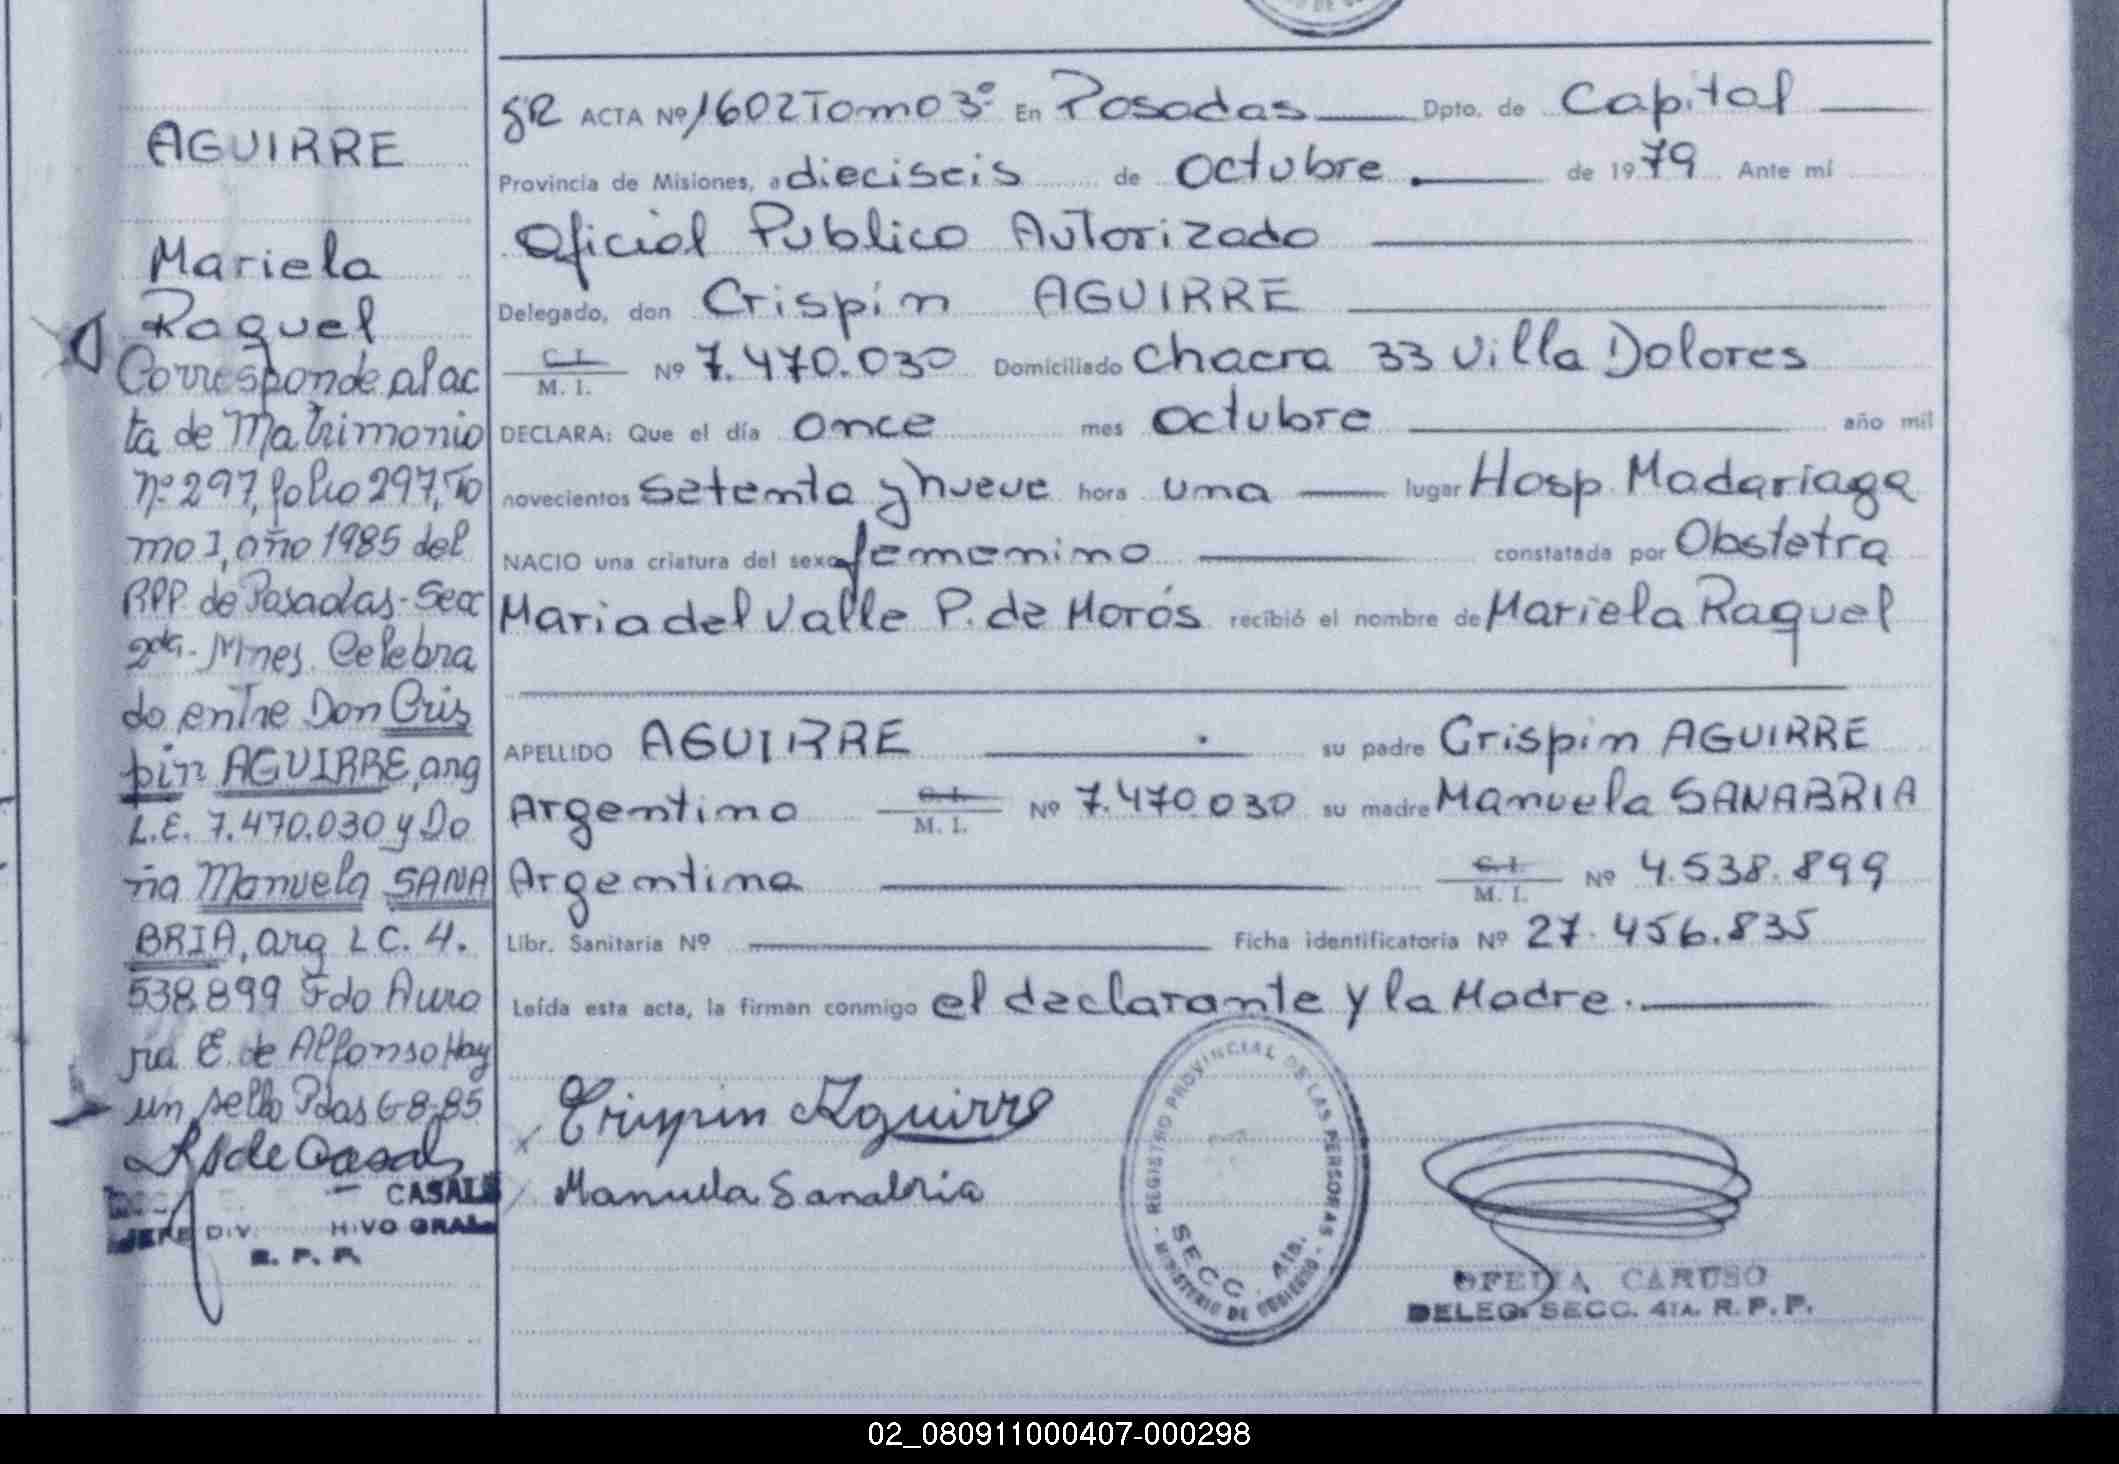 AGUIRRE
Mariela
Raquel
Corresponde al ac
ta de Matrimonio
Nº 297, folio 297, To
mo I, año 1985 del
RPP. de Posadas - Secc
2da. Mnes. Celebra
do entre Don Cris
pin AGUIRRE, arg
L.E. 7.470.030 y Do
ña Manuela SANA
BRIA, arg L C. 4.
538.899 Fdo Auro
ra E. de Alfonso Hay
un sello Pdas 6-8-85
CASALS
JEFE DIV. HIVO GRAL.
R. P. P.
ACTA Nº 1602 Tomo 3º En Posadas Dpto. de Capital
Provincia de Misiones, a dieciseis de Octubre de 1979 Ante mí
Oficial Publico Autorizado
Delegado, don Crispín AGUIRRE
C. I.
M. I. Nº 7.470.030 Domiciliado Chacra 33 Villa Dolores
DECLARA: Que el día once mes Octubre año mil
novecientos setenta y nueve hora una lugar Hosp. Madariaga
NACIO una criatura del sexo femenino constatada por Obstetra
Maria del Valle P. de Morós recibió el nombre de Mariela Raquel
APELLIDO AGUIRRE su padre Crispin AGUIRRE
Argentino C. I.
M. I. Nº 7.470.030 su madre Manuela SANABRIA
Argentina C. I.
M. I. Nº 4.538.899
Libr. Sanitaria Nº Ficha identificatoria Nº 27.456.835
Leída esta acta, la firman conmigo el declarante y la Madre.
Crispin Aguirre
Manuela Sanabria
REGISTRO PROVINCIAL DE LAS PERSONAS
SECC. 4ta.
MINISTERIO DE GOBIERNO
OFELIA CARUSO
DELEG. SECC. 4TA. R. P. P.
02_080911000407-000298